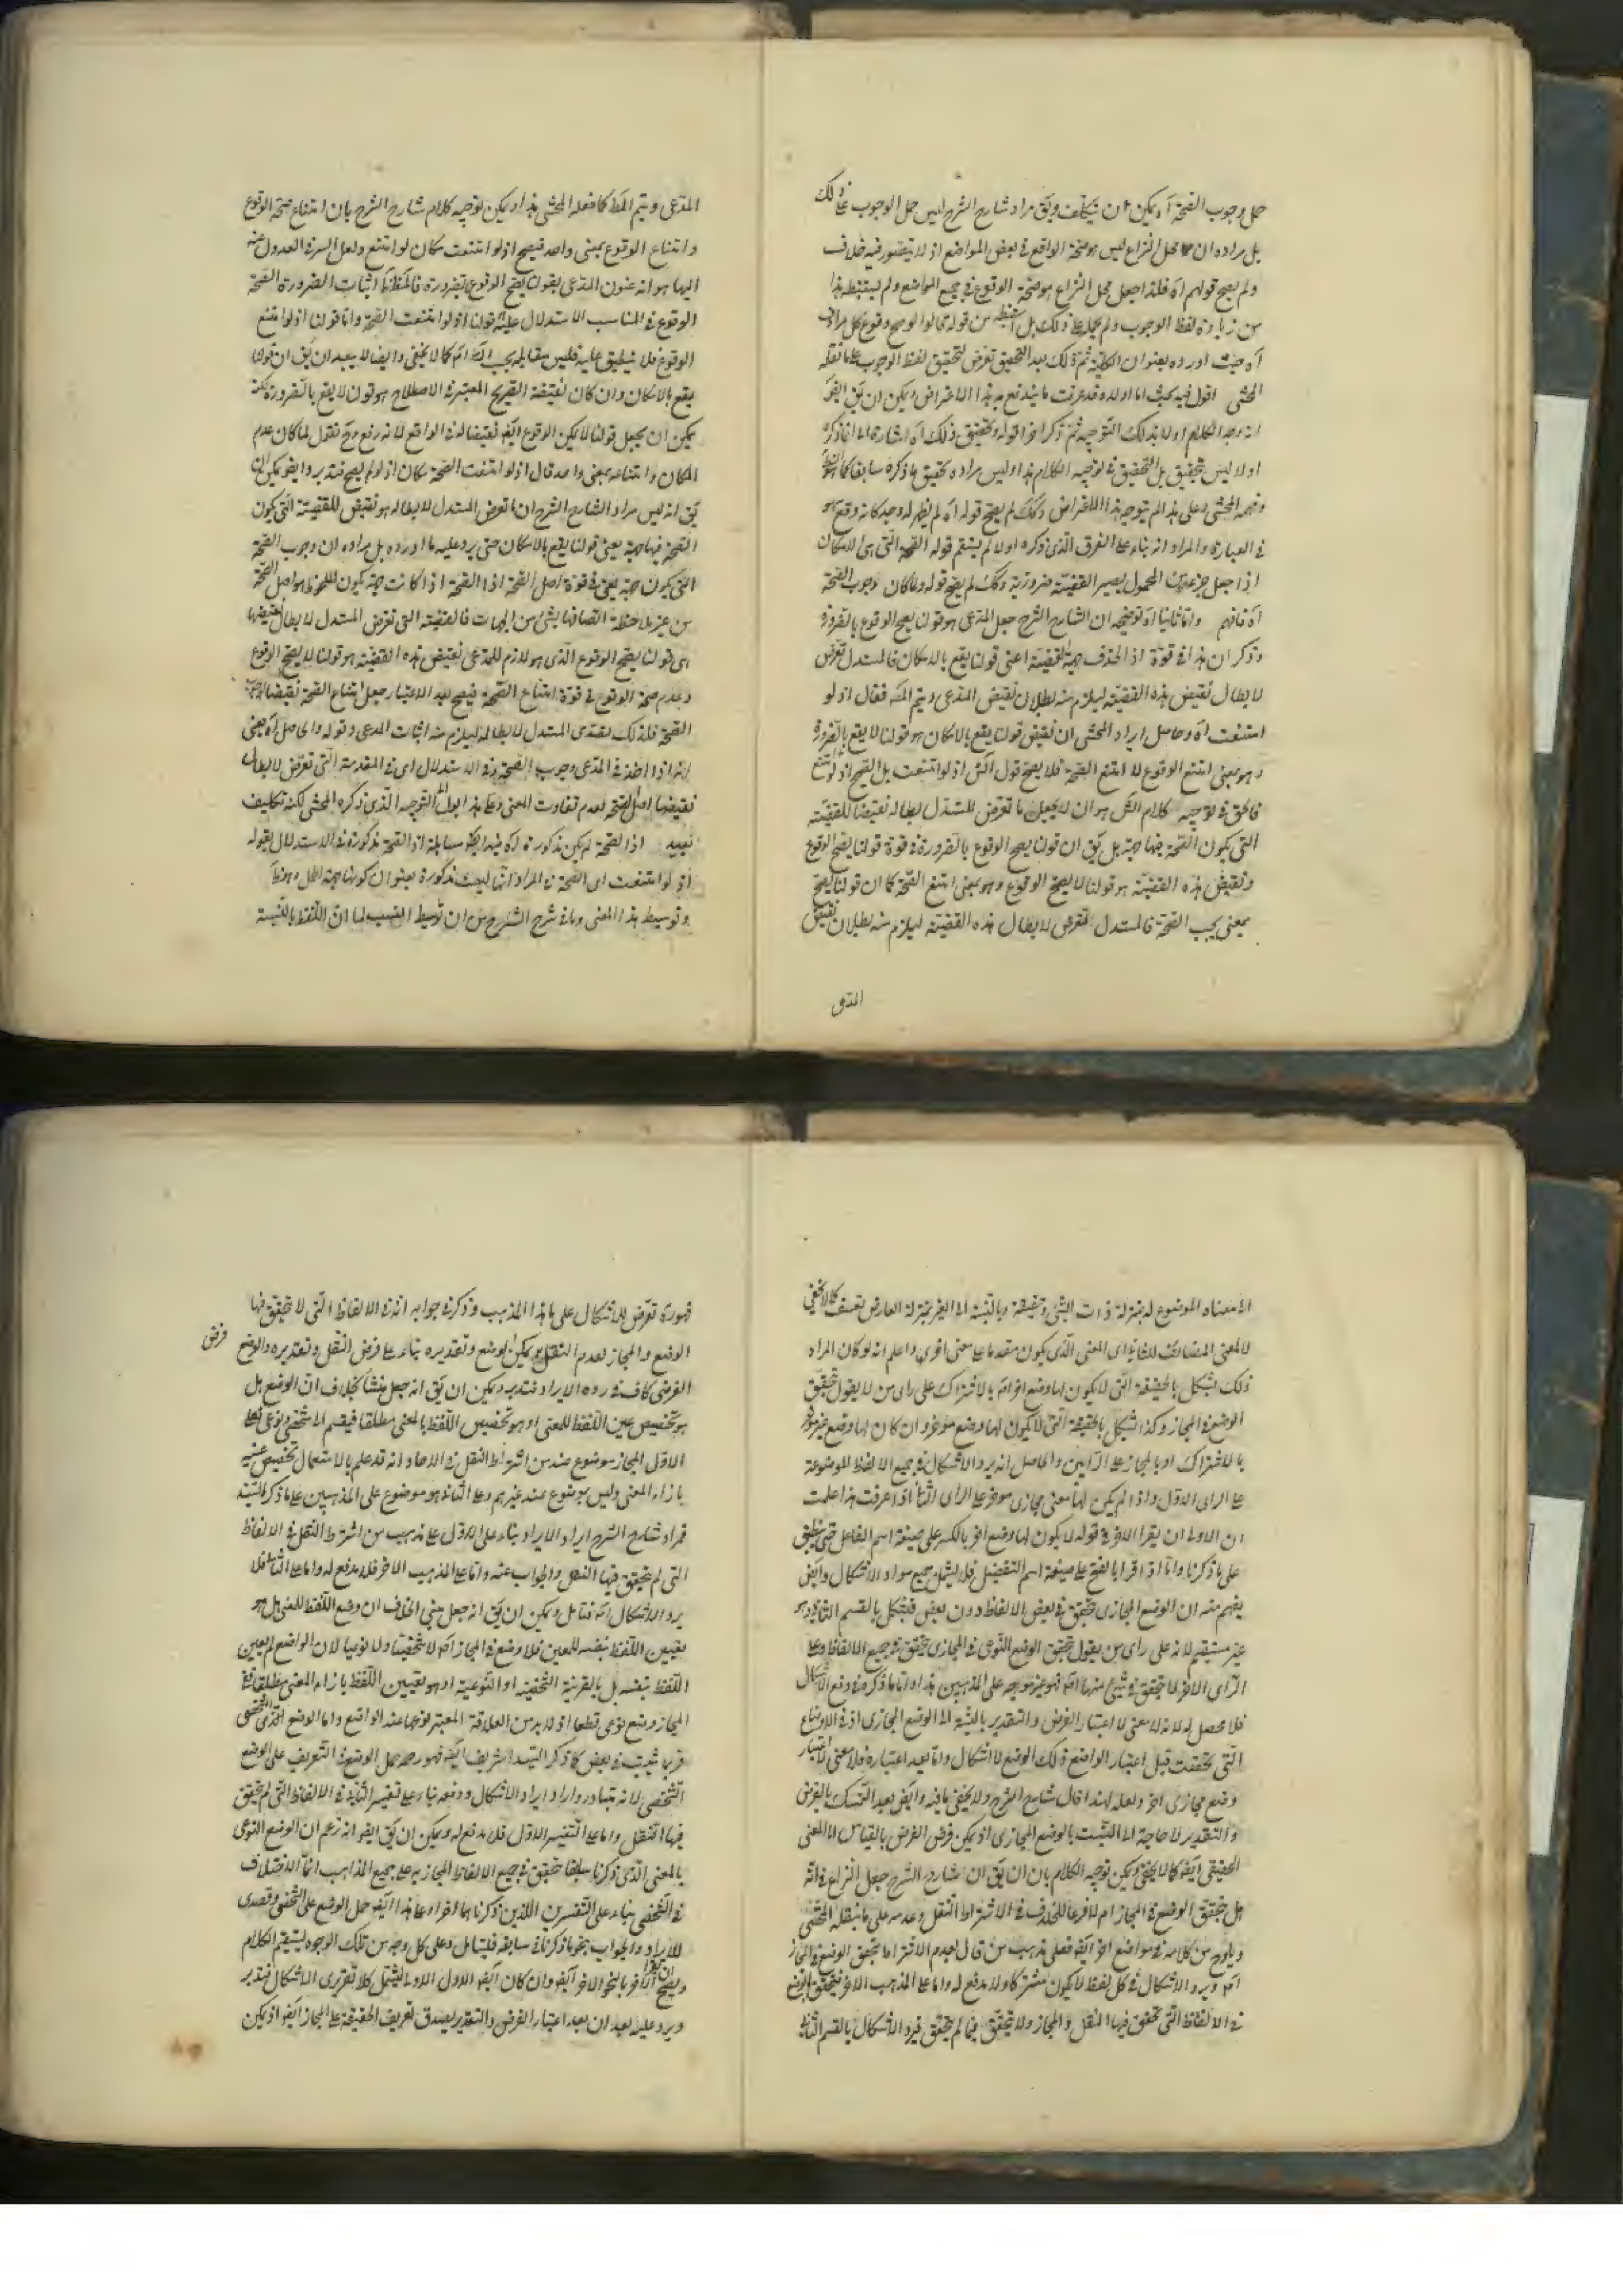 حمل وجوب الصحة آه يمكن ان يتكلف ويق مراد شارح الشرح ليس حمل الوجوب على ذلك
بل مراده ان محل النزاع ليس هو صحة الواقع في بعض المواضع اذ لا يتصور فيه خلاف
ولم يصح قولهم آه فلذا جعل محل النزاع هو صحة الوقوع في جميع المواضع ولم يستنبط هذا
من زيادة لفظ الوجوب ولم يحمله على ذلك بل من قولهم لو لم يصح وقوع كل مرادف
آه حيث اورده بعنوان الكلية ثم ذلك بعد التحقيق تعرض لتحقيق لفظ الوجوب على ما نقله
المحشي اقول فيه بحث اما اولا فقد عرفت ما يندفع به هذا الاعتراض ويمكن ان يق
وجه الكلام اولا بذلك التوجيه ثم ذكر اخرا قوله وتحقيق ذلك آه اشارة الى ان ما ذكره
اولا ليس بتحقيق بل التحقيق في توجيه الكلام هذا وليس مراده تحقيق ما ذكره سابقا كما هو
وفهمه المحشي وعلى هذا لم يتوجه هذا الاعتراض وكك لم يصح قوله آه لم يظهر له وجه
في العبارة والمراد انه بناء على الفرق الذي ذكره اولا لم يستقم قوله الصحة التي هي الامكان
اذا جعل جزء من المحمول يصير القضية ضرورية وكك لم يصح قوله ولما كان وجوب الصحة
آه فافهم واما ثانيا آه توضيحه ان الشارح الشرح جعل المدعى هو قولنا يصح الوقوع بالضرورة
وذكر ان هذا في قوة اذ الحذف جهة القضية اعني قولنا يقع بالامكان فالمستدل تعرض
لابطال نقيض هذه القضية ليلزم منه بطلان نقيض المدعى ويتم المط فقال اذ لو
امتنعت آه وحاصل ايراد المحشي ان نقيض قولنا يقع بالامكان هو قولنا لا يقع بالضرورة
وهو معنى امتنع الوقوع لا امتنع الصحة فلا يصح قول الش اذ لو امتنعت بل الصحيح اذ لو امتنع
فالحق في توجيه كلام الش هو ان لا يجعل ما تعرض المستدل لابطاله نقيضا للقضية
التي يكون الصحة فيها جهة بل يق ان قولنا يصح الوقوع بالضرورة في قوة قولنا يصح الوقوع
ونقيض هذه القضية هو قولنا لا يصح الوقوع وهو بمعنى امتنع الصحة كما ان قولنا يصح
بمعنى يجب الصحة فالمستدل تعرض لابطال هذه القضية ليلزم منه بطلان نقيض
المدعى
المدعى ويتم المط كما فعله المحشي هذا ويمكن توجيه كلام شارح الشرح بان امتناع صحة الوقوع
وامتناع الوقوع بمعنى واحد فيصح اذ لو امتنعت مكان لو امتنع ولعل السر في العدول منه
اليها هو انه عنون المدعى بقولنا يصح الوقوع بضرورة فالمنظور اثبات الضرورة الصحة
الوقوع في المناسب الاستدلال عليه قولنا اذ لو امتنعت الصحة واما قولنا اذ لو امتنع
الوقوع فلا ينطبق عليه فليس مقابله بحسب الظ اتم كما لا يخفى وايضا لا يبعد ان يق ان قولنا
يقع بالامكان وان كان نقيضه الصريح المعتبر في الاصطلاح هو قولنا لا يقع بالضرورة لكنه
يمكن ان يجعل قولنا لا يمكن الوقوع ايضا نقيضا له في الواقع لانه رفعه وح نقول لما كان عدم
الامكان وامتناعه بمعنى واحد قال اذ لو امتنعت الصحة مكان اذ لو لم يصح فتدبر وايضا يمكن ان
يق انه ليس مراد الشارح الشرح ان ما تعرض المستدل لابطاله هو نقيض للقضية التي يكون
الصحة فيها جهة يعني قولنا يقع بالامكان حتى يرد عليه ما اورده بل مراده ان وجوب الصحة
التي يكون جهة يعني في قوة اصل الصحة اذا الصحة اذا كانت جهة يكون الملحوظ هو اصل الصحة
من غير ملاحظة اتصافها بشئ من الجهات فالقضية التي تعرض المستدل لابطال نقيضها
اي قولنا يصح الوقوع الذي هو لازم للمدعى نقيض هذه القضية هو قولنا لا يصح الوقوع
وعدم صحة الوقوع في قوة امتناع الصحة فيصح بهذا الاعتبار جعل امتناع الصحة نقيضا لوجوب
الصحة فلذلك تصدى المستدل لابطاله ليلزم منه اثبات المدعى وقوله والحاصل آه يعني
انه اذا اخذ في المدعى وجوب الصحة وفي الاستدلال اي في المقدمة التي تعرض لابطال
نقيضها اصل الصحة لعدم تفاوت المعنى وعلى هذا يؤل الى التوجيه الذي ذكره المحشي لكنه تكلف
بعيد اذ الصحة لم يكن مذكورة آه فيه ايضا سابقا اذ الصحة مذكورة في الاستدلال بقوله
اذ لو امتنعت اي الصحة والمراد انها ليست مذكورة بعنوان كونها جهة
وتوسيط هذا المعنى وما في شرح الشرح من ان توسيط النسب لما ان اللفظ بالنسبة
الى معناه الموضوع له بمنزلة ذات الشئ وحقيقته وبالنسبة الى الغير بمنزلة العارض تعسف كما لا يخفى
لا المعنى المضايف للثاني اي المعنى الذي يكون مقدما على معنى اخر واعلم انه لو كان المراد
ذلك يشكل بالحقيقة التي لا يكون لها وضع اخر اتم بالاشتراك على راي من لا يقول بتحقق
الوضع في المجاز وكذا يشكل بالحقيقة التي لا يكون لها وضع مؤخر وان كان لها وضع غير مؤخر
بالاشتراك او بالمجاز على الرايين والحاصل انه يرد الاشكال في جميع الالفاظ الموضوعة
على الراي الاول واذا لم يكن لها معنى مجازي مؤخر على الراي الثاني اذا عرفت هذا علمت
ان الاولى ان يقرا الاخر في قوله لا يكون لها وضع اخر بالكسر على صيغة اسم الفاعل حتى ينطبق
على ما ذكرنا واما اذا قرا بالفتح على صيغة اسم التفضيل فلا يشمل جميع مواد الاشكال وايضا
يفهم منه ان الوضع المجازي تحقق في بعض الالفاظ دون بعض فيشكل بالقسم الثاني وهو
غير مستقيم لانه على راي من يقول بتحقق الوضع النوعي في المجازي تحقق في جميع الالفاظ وعلى
الراي الاخر لا يتحقق في شئ منها اتم فهو غير موجه على المذهبين هذا واما ما ذكره في دفع الاشكال
فلا محصل له لانه لا معنى لاعتبار الفرض والتقدير بالنسبة الى الوضع المجازي اذ في الاوضاع
التي تحققت قبل اعتبار الواضع ذلك الوضع لا اشكال واما بعد اعتباره فلا معنى لاعتبار
وضع مجازي اخر ولعله لهذا قال شارح الشرح ولا يخفى ما فيه وايضا بعد التمسك بالفرض
والتقدير لا حاجة الى التشبث بالوضع المجازي اذ يمكن فرض الفرض بالقياس الى المعنى
الحقيقي ايضا كما لا يخفى ويمكن توجيه الكلام بان يق ان شارح الشرح جعل النزاع في انه
هل يتحقق الوضع في المجاز ام لا فرعا للخلاف في الاشتراط النقل وعدمه على ما ينقله المحشي
ويلوح من كلامه في مواضع اخر ايضا فعلى مذهب من قال بعدم الاشتراط يتحقق الوضع في المجاز
اتم ويرد الاشكال في كل لفظ لا يكون مشتركا ولا مدفع له واما على المذهب الاخر فيتحقق الوضع
في الالفاظ التي تحقق فيها النقل والمجاز ولا يتحقق فيما لم يتحقق فيرد الاشكال بالقسم الثاني
فهو ره تعرض للاشكال على هذا المذهب وذكر في جوابه انه في الالفاظ التي لا تحقق فيها
الوضع والمجاز لعدم النقل يمكن بوضع وتقديره بناء على فرض النقل وتقديره والوضع
فرض
الفرضي كاف في رده الايراد فتدبر ويمكن ان يق انه جعل منشا الخلاف ان الوضع هل
هو تخصيص عين اللفظ للمعنى او هو تخصيص اللفظ بالمعنى مطلقا فيقسم الى شخصي ونوعي فعلى
الاول المجاز موضوع عند من اشترط النقل في الاحاد انه قد علم بالاستعمال تخصيص عينه
بازاء المعنى وليس بموضوع عند غيرهم وعلى الثاني هو موضوع على المذهبين على ما ذكره السيد
فمراد شارح الشرح ايراد الايراد بناء على الاول على مذهب من اشترط النقل في الالفاظ
التي لم يتحقق فيها النقل والجواب عنه واما على المذهب الاخر فلا مدفع له واما على الثاني فلا
يرد الاشكال اتم فتامل ويمكن ان يق انه جعل مبنى الخلاف ان وضع اللفظ للمعنى هل هو
تعيين اللفظ بنفسه للمعنى فلا وضع في المجاز اتم لا شخصيا ولا نوعيا لان الواضع لم يعين
اللفظ بنفسه بل بالقرينة الشخصية او النوعية او هو تعيين اللفظ بازاء المعنى مطلقا ففي
المجاز وضع نوعي قطعا اذ لا بد من العلاقة المعتبر نوعها عند الواضع واما الوضع الشخصي
فربما ثبت في بعض كما ذكر السيد الشريف ايضا فهو ره حمل الوضع في التعريف على الوضع
الشخصي لانه متبادر واراد ايراد الاشكال ودفعه بناء على تفسير الثاني في الالفاظ التي لم يتحقق
فيها النقل واما على التفسير الاول فلا مدفع له ويمكن ان يق ايضا انه زعم ان الوضع النوعي
بالمعنى الذي ذكرنا سابقا تحقق في جميع الالفاظ المجازية على جميع المذاهب انما الاختلاف
في الشخصي بناء على التفسيرين اللذين ذكرناهما اخرا وعلى هذا ايضا حمل الوضع على الشخصي وتصدى
للايراد والجواب بنحو ما ذكرناه في سابقه فليتامل وعلى كل وجه من تلك الوجوه يستقيم الكلام
ويصح ان يقرا الاخر بالنحو الاخر ايضا وان كان ايضا الاول اولى ليشمل كلا تقريري الاشكال فتدبر
ويرد عليه بعد ان بعد اعتبار الفرض والتقدير يصدق تعريف الحقيقة على المجاز ايضا اذ يمكن